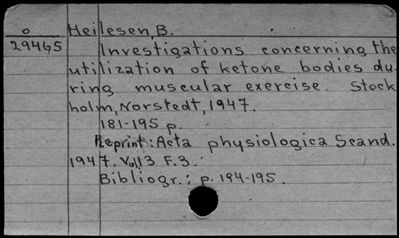 o Heilesen, B.
29465 Investigations concerning the
utilization of ketone bodies du-
ring muscular exercise. Stock
holm, Norstedt, 1947.
181-195 p.
Reprint: Acta physiologica Scand.
1947. Vol 13 F.3.
Bibliogr.: p. 194-195.